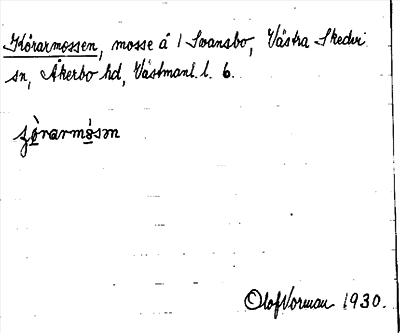 Körarmossen, mosse å 1 Svansbo, Västra Skedvi
sn, Åkerbo hd, Västmanl. l. 6.
Olof Vorman 1930.